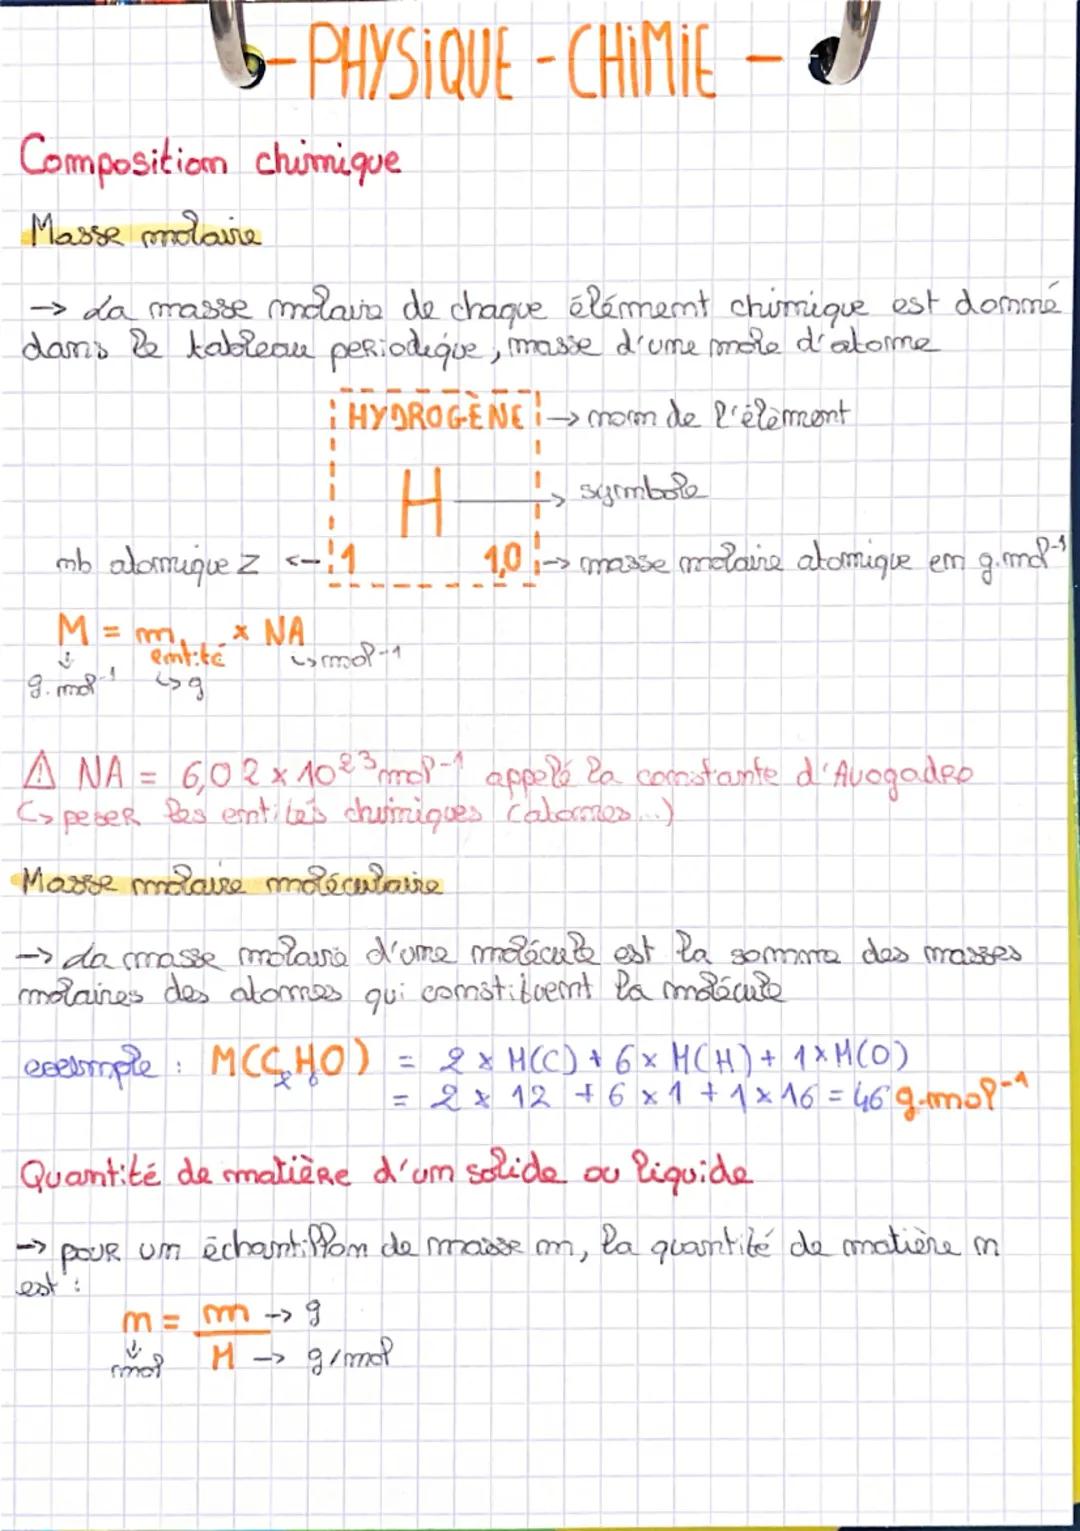 - PHYSIQUE - CHIMIE -
Composition chimique
Masse molaire
→ La masse molaire de chaque élément chimique est donné
dans le tableau periodique, masse d'une mole d'atome
HYDROGÈNE → nom de l'élément
H → symbole
nb atomique Z <-- 1 1,0 → masse molaire atomique en g.mol⁻¹
M = m entité × NA
g.mol⁻¹ ↳ g ↳ mol⁻¹
⚠ NA = 6,02 × 10²³ mol⁻¹ appelé la constante d'Avogadro
↳ peser les entités chimiques (atomes...)
Masse molaire moléculaire
→ La masse molaire d'une molécule est la somme des masses
molaires des atomes qui constituent la molécule
exemple : M(C₂H₆O) = 2 × M(C) + 6 × M(H) + 1 × M(O)
= 2 × 12 + 6 × 1 + 1 × 16 = 46 g.mol⁻¹
Quantité de matière d'un solide ou liquide
→ pour un échantillon de masse m, la quantité de matière n
est :
n = m → g
mol M → g/mol